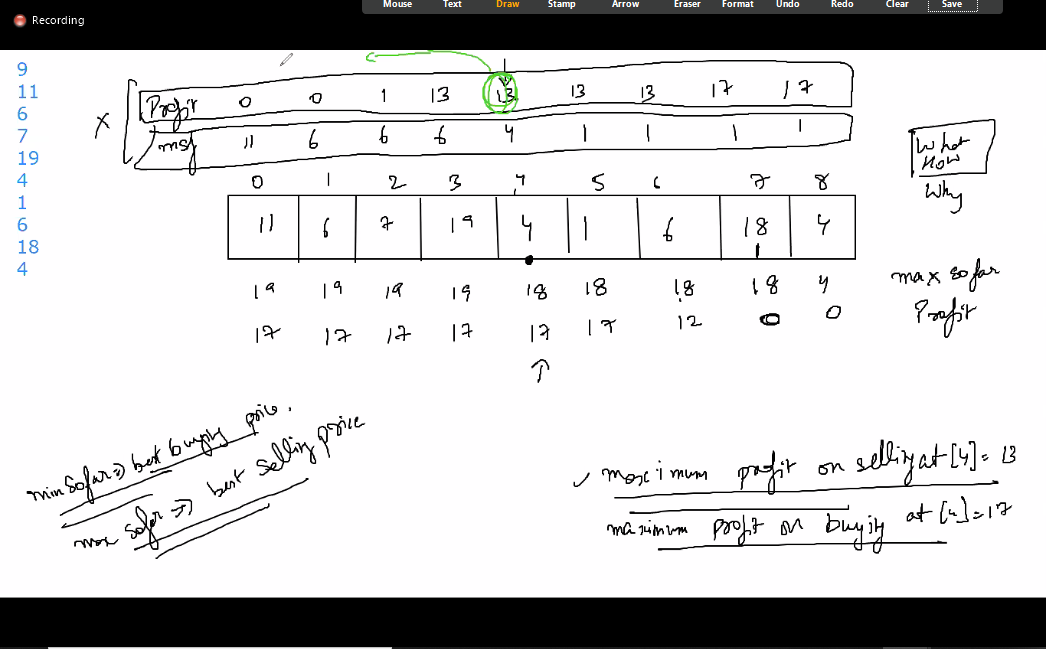 Mouse Text Draw Stamp Arrow Eraser Format Undo Redo Clear Save
Recording
9
11
6
7
19
4
1
6
18
4
x
Profit 0 0 1 13 13 13 13 17 17
msf 11 6 6 6 4 1 1 1 1
0 1 2 3 4 5 6 7 8
11 6 7 19 4 1 6 18 4
19 19 19 19 18 18 18 18 4 max so far
17 17 17 17 17 17 12 0 0 Profit
What
How
Why
min sofar => best buying price.
max sofar => best selling price
maximum profit on selling at [4] = 13
maximum profit on buying at [4] = 17